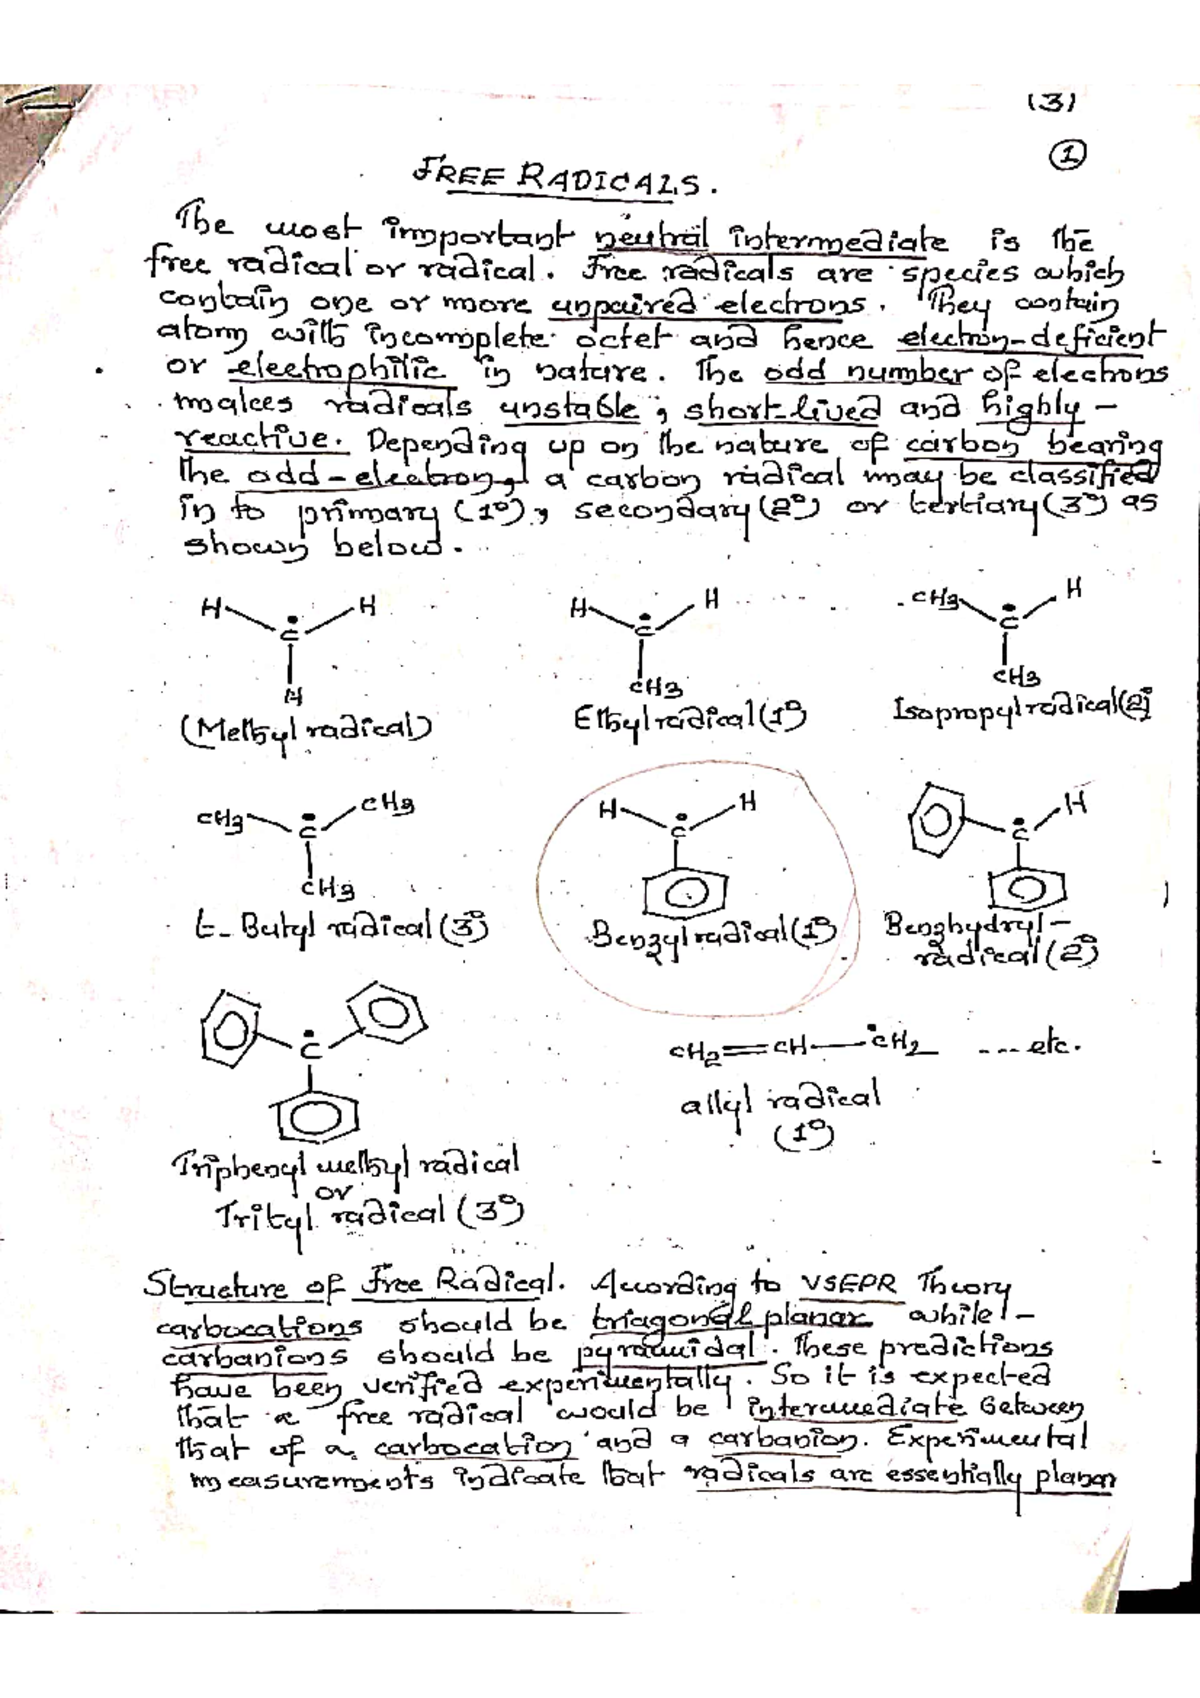 (3)
1
FREE RADICALS.
The most important neutral intermediate is the
free radical or radical. Free radicals are species which
contain one or more unpaired electrons. They contain
atom with incomplete octet and hence electron-deficient
or electrophilic in nature. The odd number of electrons
makes radicals unstable, short-lived and highly-
reactive. Depending up on the nature of carbon bearing
the odd-electron, a carbon radical may be classified
in to primary (1°), secondary (2°) or tertiary (3°) as
shown below.
H H H H CH3 H
C C C
H CH3 CH3
(Methyl radical) Ethyl radical (1°) Isopropyl radical (2°)
CH3 CH3 H H H
C C C
CH3
t-Butyl radical (3°) Benzyl radical (1°) Benzhydryl-
radical (2°)
C
CH2=CH-CH2 ---- etc.
allyl radical
(1°)
Triphenyl methyl radical
or
Trityl radical (3°)
Structure of Free Radical. According to VSEPR Theory
carbocations should be triagonal planar while-
carbanions should be pyramidal. These predictions
have been verified experimentally. So it is expected
that a free radical would be intermediate between
that of a carbocation and a carbanion. Experimental
measurements indicate that radicals are essentially planar